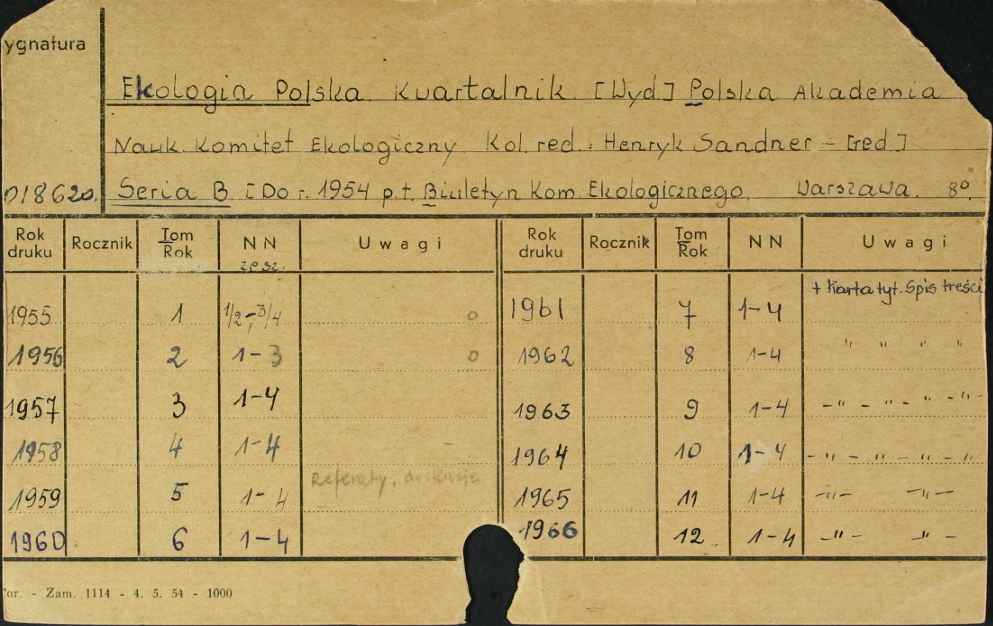 ygnatura
Ekologia Polska Kwartalnik [Wyd] Polska Akademia
Nauk. Komitet Ekologiczny Kol. red.: Henryk Sandner - [red.]
01862o. Seria B. [Do r. 1954 p.t. Biuletyn Kom. Ekologicznego. Warszawa. 8°.
Rok druku Rocznik Tom Rok NN zesz. Uwagi Rok druku Rocznik Tom Rok NN Uwagi
+ Karta tyt. Spis treści
1955 1 1/2-3/4 o 1961 7 1-4
1956 2 1-3 o 1962 8 1-4 " " " "
1957 3 1-4 1963 9 1-4 -"- -"- -"- -"-
1958 4 1-4 - 1964 10 1-4 -"- -"- -"- -"-
Referaty, dyskusje
1959 5 1-4 1965 11 1-4 -"- -"-
1960 6 1-4 1966 12 1-4 -"- -"-
or. - Zam. 1114 - 4. 5. 54 - 1000